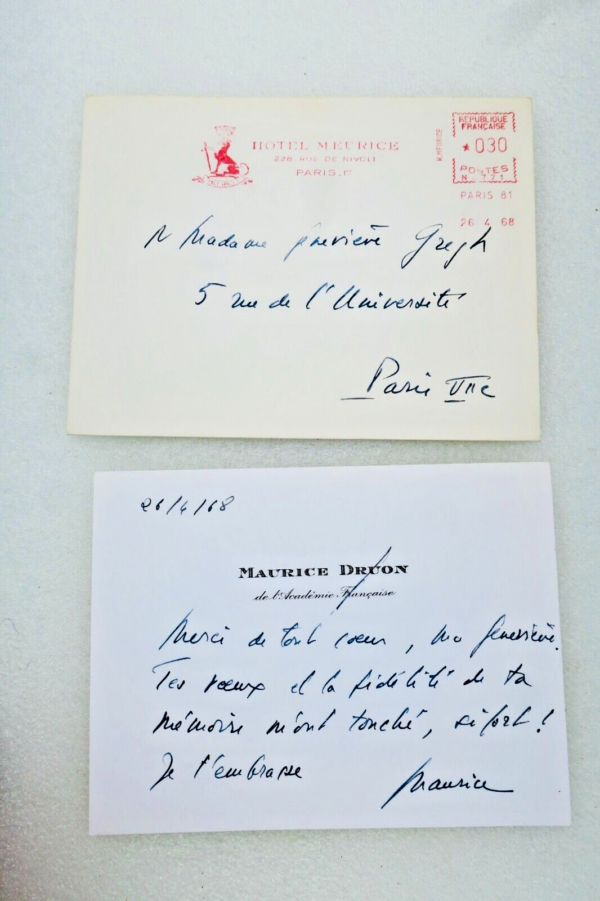 HOTEL MEURICE
228, RUE DE RIVOLI
PARIS.1er
H. MEURICE
REPUBLIQUE
FRANÇAISE
*030
POSTES
PARIS 81
26 4 68
Madame Geneviève Gregh
5 rue de l'Université
Paris VIIe
26/4/68
MAURICE DRUON
de l'Académie Française
Merci de tout cœur, ma Geneviève.
Tes vœux et la fidélité de ta
mémoire m'ont touché, si fort !
Je t'embrasse
Maurice